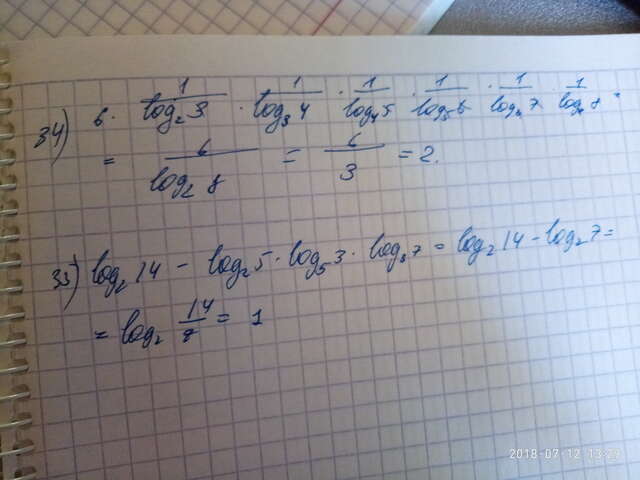 34) 6 · 1/log₂3 · 1/log₃4 · 1/log₄5 · 1/log₅6 · 1/log₆7 · 1/log₇8 =
= 6/log₂8 = 6/3 = 2.
35) log₂14 - log₂5 · log₅3 · log₃7 = log₂14 - log₂7 =
= log₂ 14/7 = 1
2018-07-12 13:29